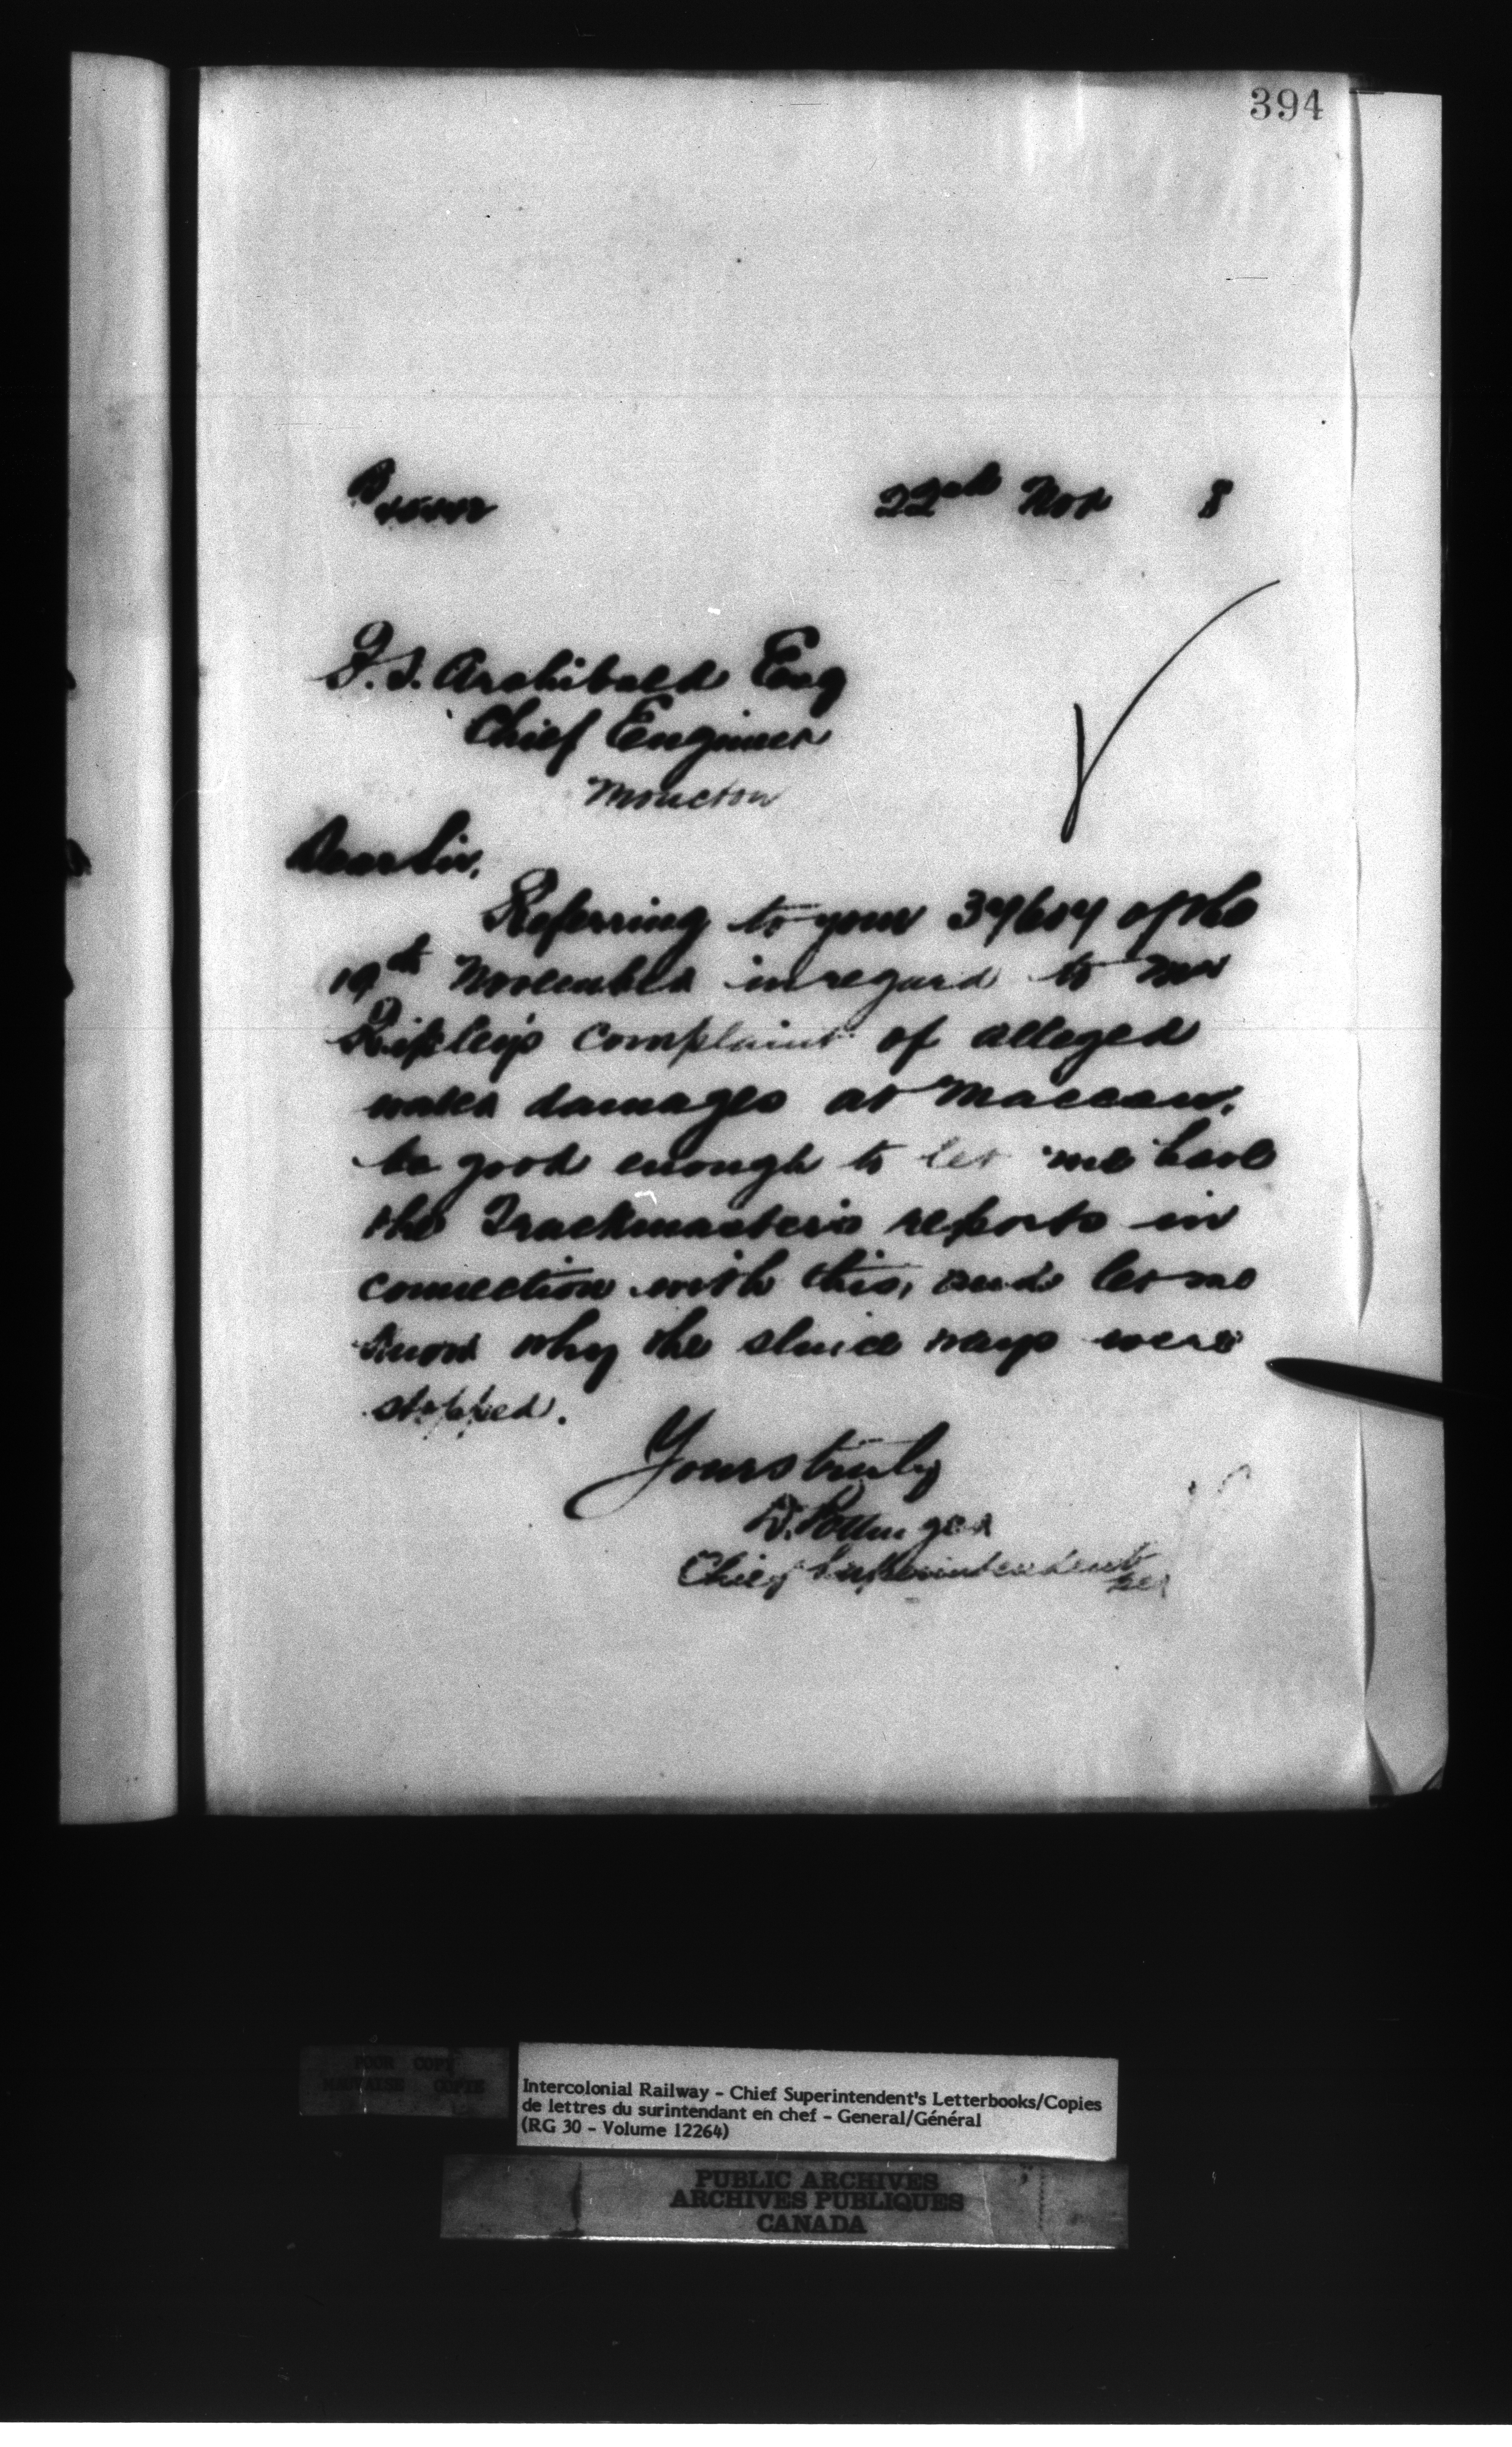 394
22nd Nov 8
Archibald Esq
Chief Engineer
Moncton
Dear Sir,
Referring to your of the
19th November in regard to Mr
Ripley's complaint of alleged
water damages at Maccan,
be good enough to let me have
the Trackmaster's reports in
connection with this, and let me
know why the sluice ways were
stopped.
Yours truly
D. Pottinger
Chief Superintendent
POOR COPY
MAUVAISE COPIE
Intercolonial Railway - Chief Superintendent's Letterbooks/Copies
de lettres du surintendant en chef - General/Général
(RG 30 - Volume 12264)
PUBLIC ARCHIVES
ARCHIVES PUBLIQUES
CANADA